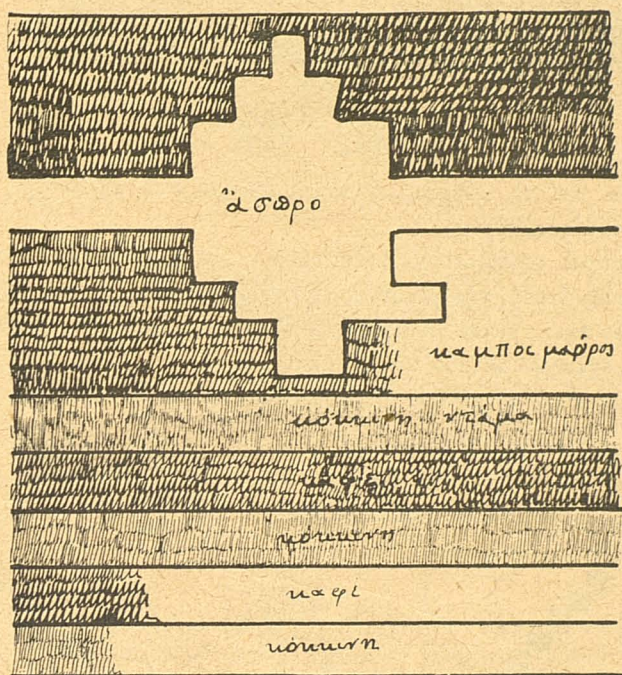 ἄσπρο
κάμπος μαῦρος
κόκκινη ντάμα
καφὲ
κόκκινη
καφὲ
κόκκινη